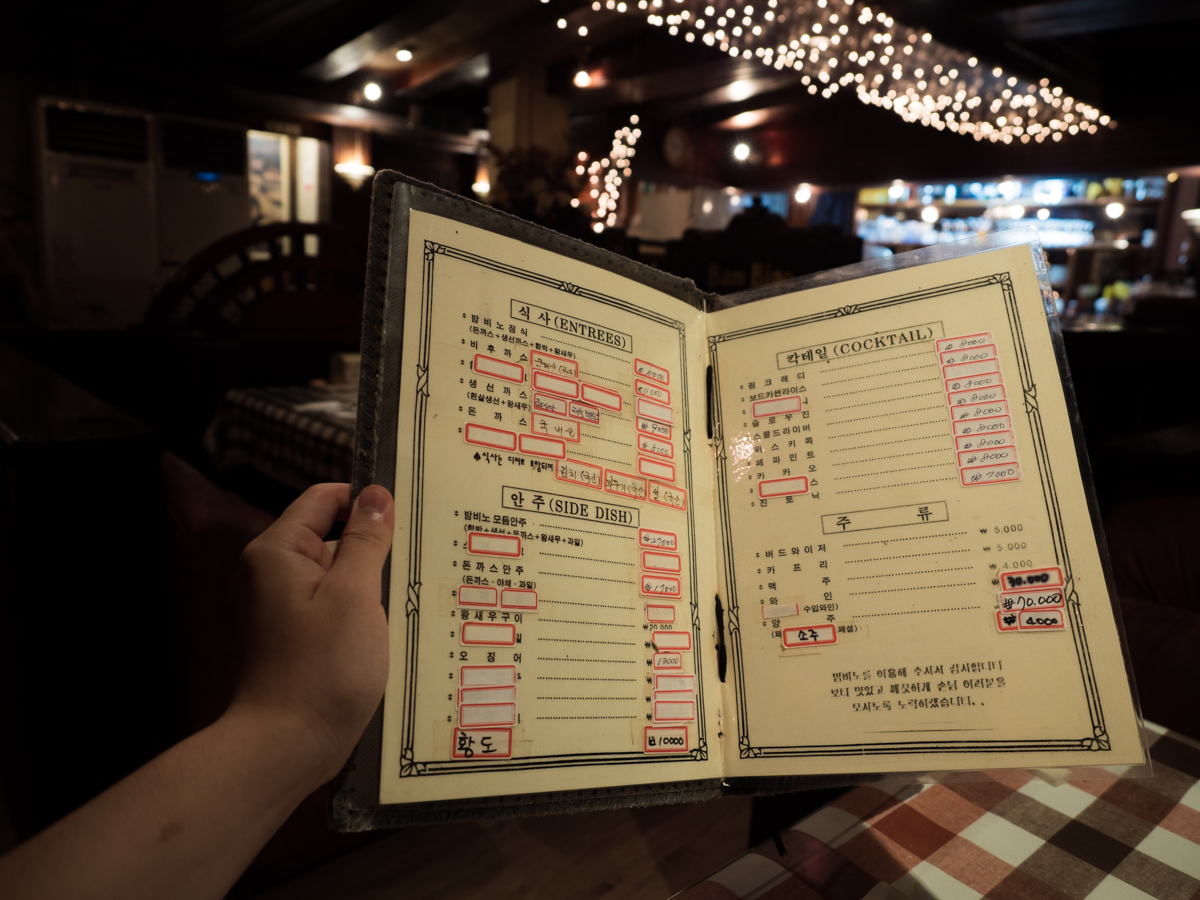 식 사 (ENTREES)
밤비노정식
(돈까스+생선까스+함박+왕새우)
비 후 까 스
₩11000
생 선 까 스
(흰살생선+왕새우)
₩9000
돈 까 스 국내산
₩8000
♠식사는 김치(국산) 쌀(국산)
안 주 (SIDE DISH)
밤비노 모듬안주 ₩27000
(함박+생선+돈까스+왕새우+과일)
돈까스안주 ₩17000
(돈까스·야채·과일)
왕새우구이 ₩20.000
일 ₩
오 징 어 13000
황도 ₩10000
칵테일 (COCKTAIL)
핑 크 레 디 ₩8000
보드카썬라이스 ₩8000
슬 로 우 진 ₩8000
스쿨드라이버 ₩8000
위 스 키 콕 ₩8000
페 파 민 트 ₩8000
카 카 오 ₩8000
스
진 토 닉 ₩7000
주 류
버드와이저 ₩ 5.000
카 프 리 ₩ 5.000
맥 주 ₩ 4.000
와 인 30.000
수입와인)
양 주 ₩70.000
(패 소주 패설) ₩ 4000
밤비노를 이용해 주셔서 감사합니다
보다 맛있고 깨끗하게 손님 여러분을
모시도록 노력하겠습니다..